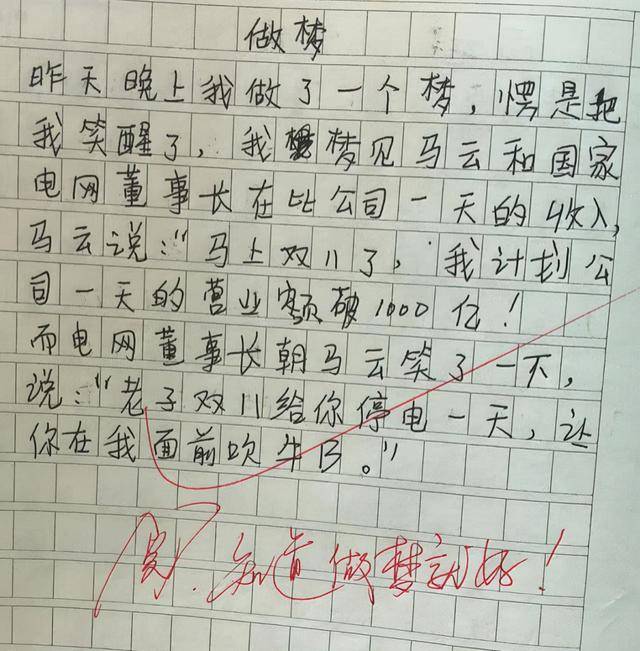 做梦
昨天晚上我做了一个梦，愣是把
我笑醒了，我梦见马云和国家
电网董事长在比公司一天的收入，
马云说：“马上双11了，我计划公
司一天的营业额破1000亿！
而电网董事长朝马云笑了一下，
说：“老子双11给你停电一天，让
你在我面前吹牛B。”
阅。知道做梦就好！